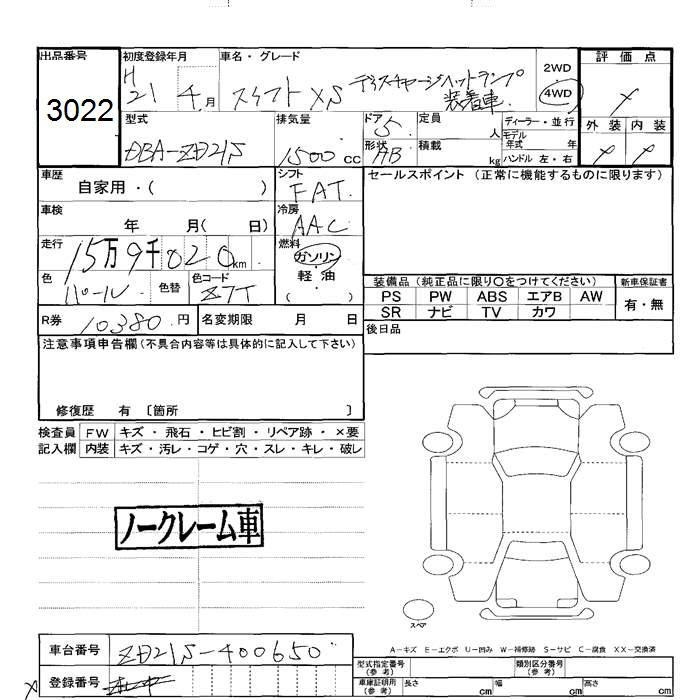 出品番号 初度登録年月 車名・グレード 評価点
3022 H 21年 月 スイフト XS ディスチャージヘットランプ 2WD
装着車 4WD
型式 排気量 ドア 5 定員 人 ディーラー・並行 外装 内装
DBA-ZD21S 1500cc 形状 AB 積載 kg モデル年式 年
ハンドル 左・右
車歴 自家用・( ) シフト FAT セールスポイント (正常に機能するものに限ります)
車検 年 月( 日) 冷房 AAC
走行 15万9千020km 燃料 ガソリン
色 パール 色替 色コード Z7T 軽・油
( )
装備品 (純正品に限り○をつけてください) 新車保証書
PS PW ABS エアB AW 有・無
SR ナビ TV カワ
R券 10380円 名変期限 月 日 後日品
注意事項申告欄(不具合内容等は具体的に記入して下さい)
修復歴 有 〔箇所 〕
検査員 FW キズ・飛石・ヒビ割・リペア跡・×要
記入欄 内装 キズ・汚レ・コゲ・穴・スレ・キレ・破レ
ノークレーム車
スペア
A-キズ E-エクボ U-凹み W-補修跡 S-サビ C-腐食 XX-交換済
車台番号 ZD21S-400650 型式指定番号(参考) 類別区分番号(参考)
登録番号 車庫証明用(参考) 長さ cm 幅 cm 高さ cm